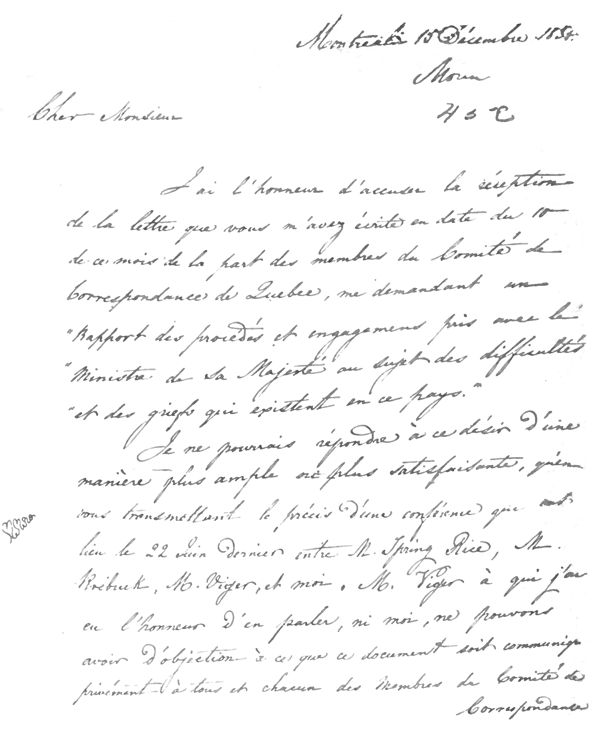 Montréal 15 Décembre 1834.
Morin
Cher Monsieur
J'ai l'honneur d'accuser la réception
de la lettre que vous m'avez écrite en date du 10
de ce mois de la part des membres du Comité de
Correspondance de Quebec, me demandant un
"Rapport des procédés et engagemens pris avec le
"Ministre de Sa Majesté au sujet des difficultés
"et des griefs qui existent en ce pays."
Je ne pourrais répondre à ce désir d'une
manière plus ample ou plus satisfaisante, qu'en
vous transmettant le précis d'une conférence que eut
lieu le 22 Juin dernier entre M. Spring Rice, M.
Roebuck, M. Viger, et moi. M. Viger à qui j'ai
eu l'honneur d'en parler, ni moi, ne pouvons
avoir d'objection à ce que ce document soit communiqué
privément à tous et chacun des Membres du Comité de
Correspondance